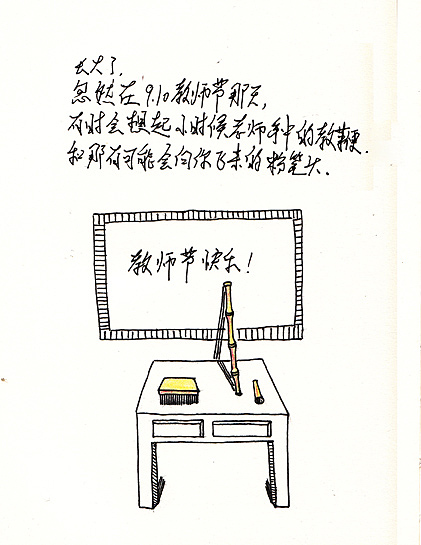 长大了,
忽然在9.10教师节那天,
有时会想起小时候老师手中的教鞭.
和那有可能会向你飞来的粉笔头.
教师节快乐!